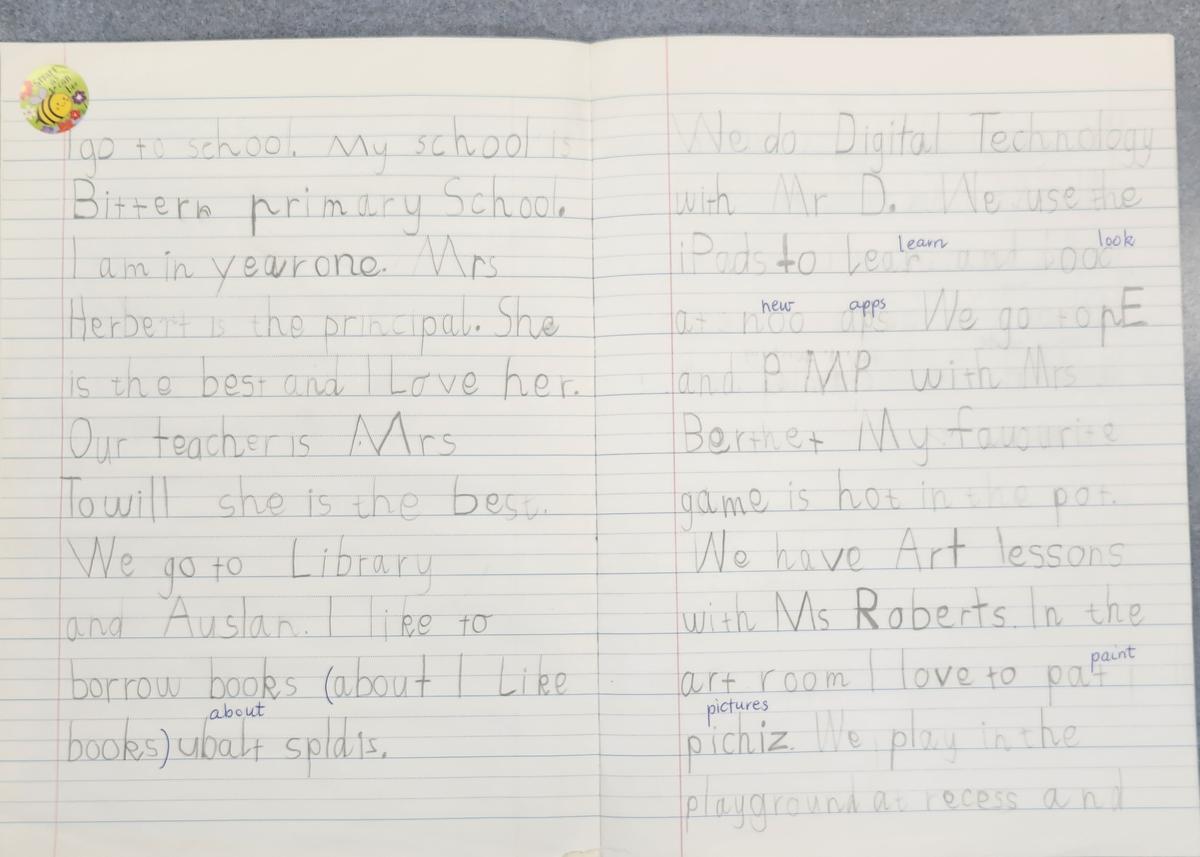 I go to school. My school is
Bittern primary School.
I am in year one. Mrs
Herbert is the principal. She
is the best and I Love her.
Our teacher is Mrs
Towill she is the best.
We go to Library
and Auslan. I like to
borrow books (about I Like
about
books) ubalt spldis.
We do Digital Technology
with Mr D. We use the
learn look
iPads to Lear and look
new apps
at noo aps We go to pE
and P MP with Mrs
Berthet My favourite
game is hot in the pot.
We have Art lessons
with Ms Roberts. In the
paint
art room I love to pat
pictures
pichiz. We play in the
playground at recess and